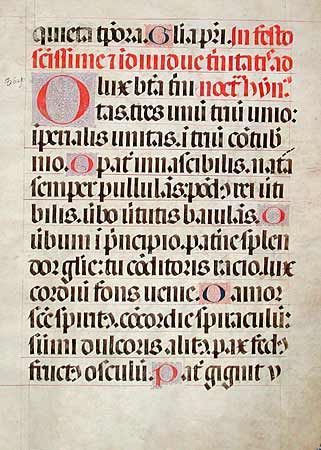 quieta tpora. Glia pri. In festo
scissime et idiuidue tinitatis ad
O lux bta tini noct hyn
tas. tres unu triu unio:
iperialis unitas. i triu cotub
nio. O pat innascibilis. nata
semper pullulas: rei uti
bilis. ubo ututis baiulas. O
uibum i pncipio. patne splen
dor glie: tu coditoris racio. lux
cordiu fons uenie. O amor
sce spirit. cocordie spiraculu:
sumi dulcoris alit. pax fed
fruct osculu. Pat gignit v